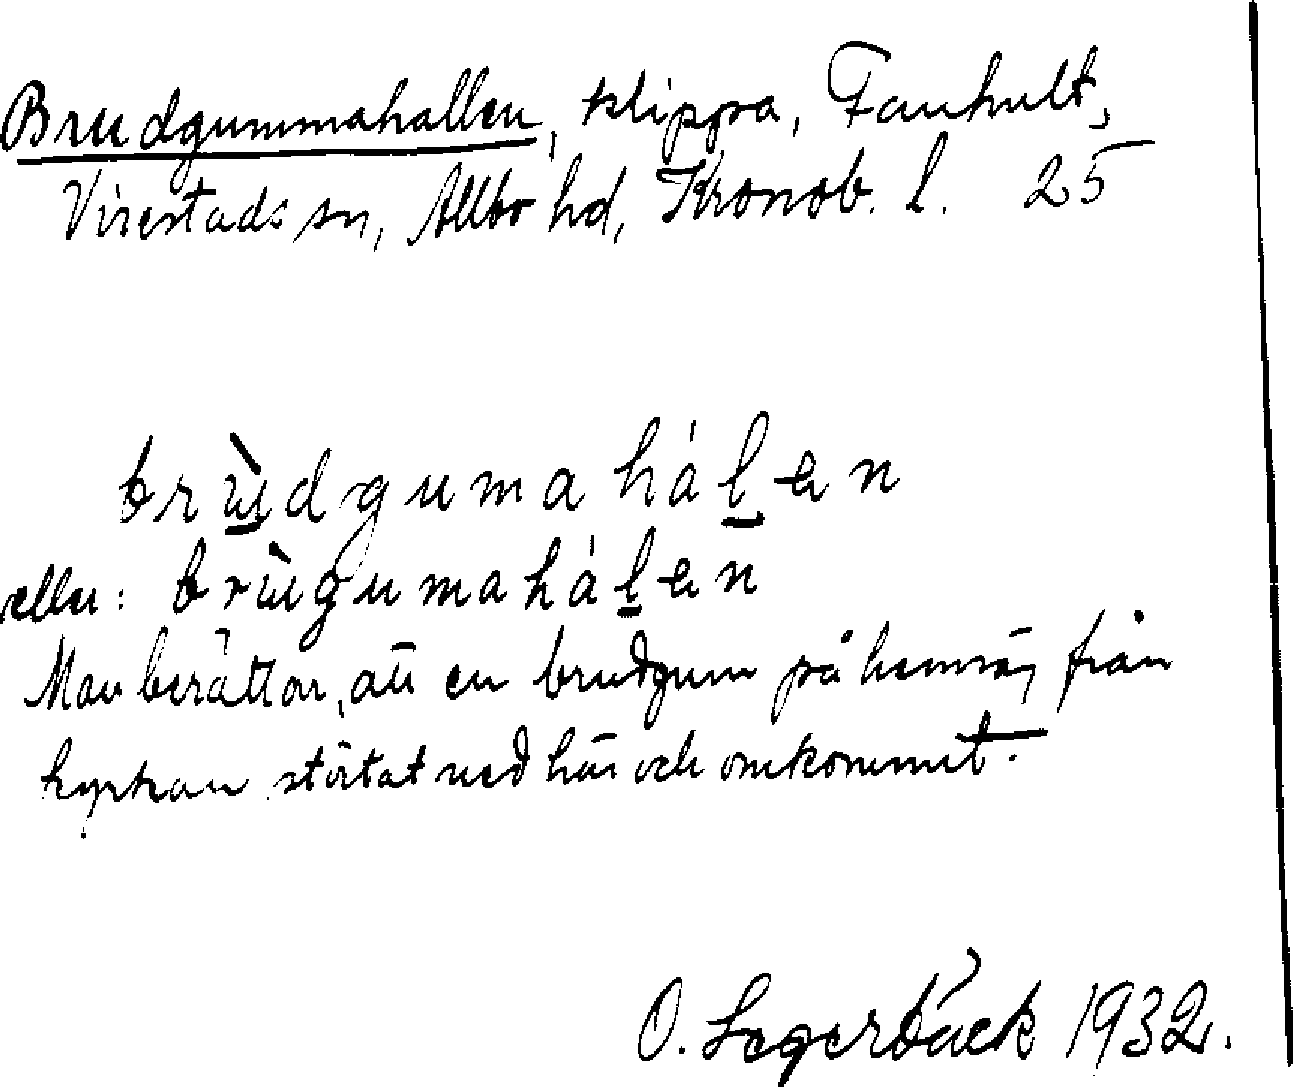 Brudgummahallen, klippa, Fanhult,
Virestads sn, Allbo hd, Kronob. l. 25
brùdgumahálen
eller: brùgumahálen
Man berättar, att en brudgum på hemväg från
kyrkan störtat ned här och omkommit.
O. Segerbäck 1932.